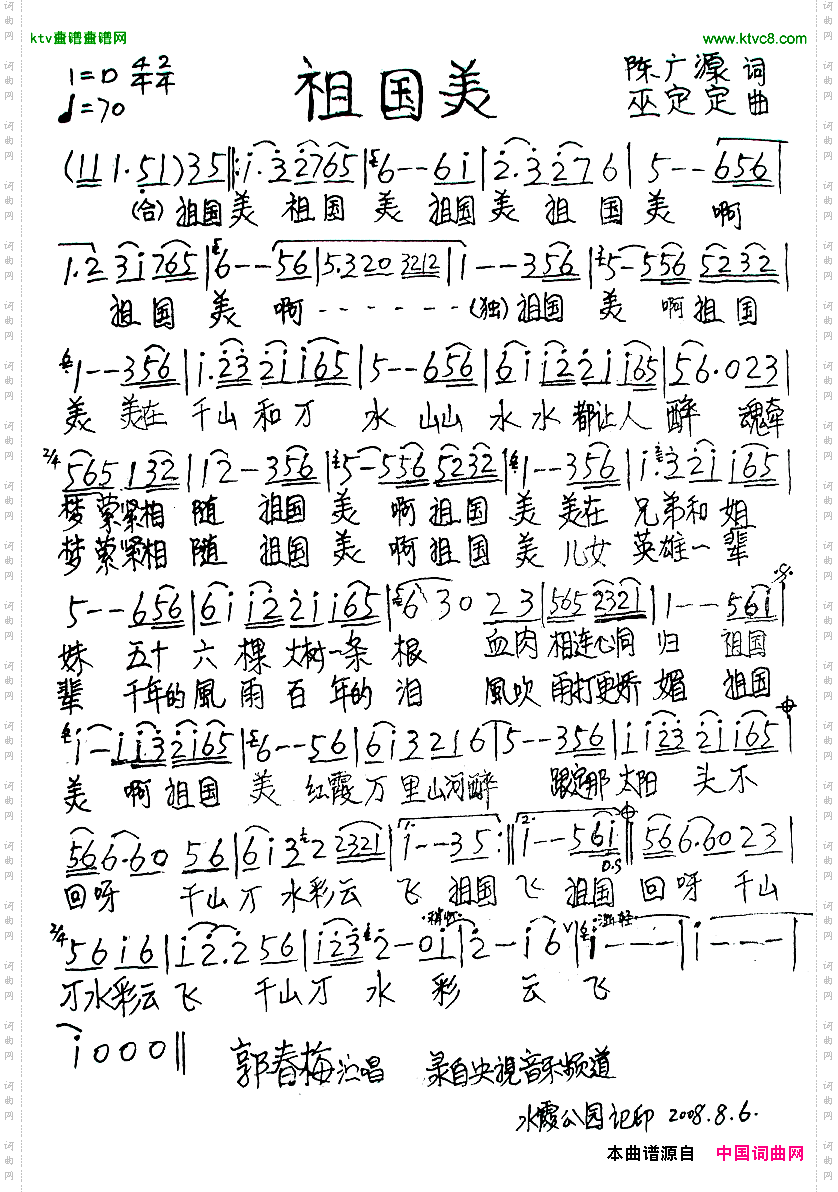 ktv曲谱曲谱网
www.ktvc8.com
1=D 4/4 2/4
♩=70
祖国美
陈广源 词
巫定定 曲
(11 1·51)35 i·32765 6--6i 2·3276 5--656
(合)祖国美 祖国 美 祖国美 祖 国美 啊
1·2 3i765 6--56 5·320 3212 1--356 5-556 5232
祖国 美 啊------(独)祖国 美 啊祖国
1--356 i·23 2ii65 5--656 6ii22ii65 56·023
美 美在 千山 和万 水 山山 水水都让人 醉 魂牵
2/4 565 132 12-356 5-556 5232 1--356 i·32ii65
梦萦紧相 随 祖国 美 啊祖国 美 美在 兄弟和姐
梦萦紧相 随 祖国 美 啊祖国 美 儿女 英雄一辈
5--656 6i i22ii65 6 30 23 565 2321 1--56i
妹 五十六棵大树一条 根 血肉相连心同 归 祖国
辈 千年的風雨百年的 泪 風吹雨打更娇 媚 祖国
i-ii32i65 6--56 6i3216 5--356 ii23 2i65
美 啊祖国 美 红霞万里山河醉 跟定那太阳 头不
566·60 56 6i32 2321 1. i--35 2. i--56i 566·60 23
D.S
回呀 千山万水彩云 飞 祖国 飞 祖国 回呀 千山
2/4 56i6 i2·256 i232-0i 2-i6 i--- i---
万水彩云飞 千山万 水 彩 云 飞
i000
郭春梅演唱 录自央視音乐频道
水霞公园记印 2008.8.6.
本曲谱源自 中国词曲网
词曲网